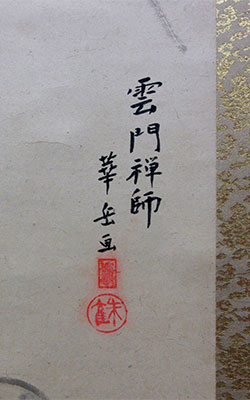 雲門禅師
華岳画